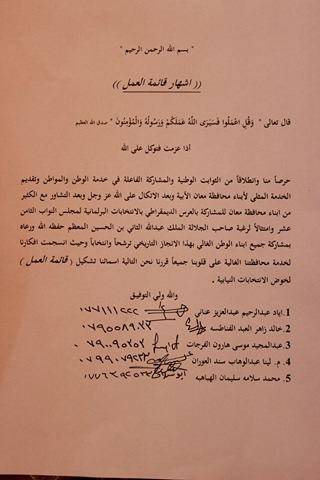 " بسم الله الرحمن الرحيم "
(( اشهار قائمة العمل ))
قال تعالى " وَقُلِ اعْمَلُوا فَسَيَرَى اللَّهُ عَمَلَكُمْ وَرَسُولُهُ وَالْمُؤْمِنُونَ " صدق الله العظيم
أذا عزمت فتوكل على الله
حرصاً منا وانطلاقاً من الثوابت الوطنية والمشاركة الفاعلة في خدمة الوطن والمواطن وتقديم
الخدمة المثلى لأبناء محافظة معان الأبية وبعد الاتكال على الله عز وجل وبعد التشاور مع الكثير
من ابناء محافظة معان للمشاركة بالعرس الديمقراطي بالانتخابات البرلمانية لمجلس النواب الثامن
عشر وامتثالاً لرغبة صاحب الجلالة الملك عبدالله الثاني بن الحسين المعظم حفظه الله ورعاه
بمشاركة جميع ابناء الوطن الغالي بهذا الانجاز التاريخي ترشحاً وانتخاباً وحيث انسجمت افكارنا
لخدمة محافظتنا الغالية على قلوبنا جميعاً قررنا نحن التالية اسمائنا تشكيل ( قائمة العمل )
لخوض الانتخابات النيابية .
والله ولي التوفيق
1. اياد عبدالرحيم عبدالعزيز عناني
2. خالد زاهر العبد الفناطسه
3. عبدالمجيد موسى هارون الفرجات
4. م. لينا عبدالوهاب سند العوران
5. محمد سلامه سليمان الهباهبه